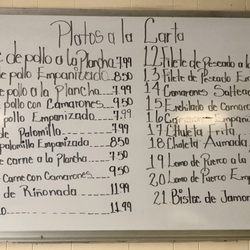 Platos a la Carta
de pollo a la Plancha 7.99
de pollo Empanizado 8.50
de pollo a la Plancha 7.99
pollo con Camarones 9.50
pollo Empanizado 7.99
de Palomillo 7.99
palomillo Empanizada 8.50
de carne a la Plancha 7.50
Carne con Camarones 9.50
de Riñonada 11.99
11.99
12 Filete de Pescado a la
13 Filete de Pescado Em
14 Camarones Saltea
15 Enchilado de Camaro
16 Camarones Empani
17 Chuleta Frita
18 Chuleta Ahumada
19 Lomo de Puerco a la
20 Lomo de Puerco Emp
21 Bistec de Jamon